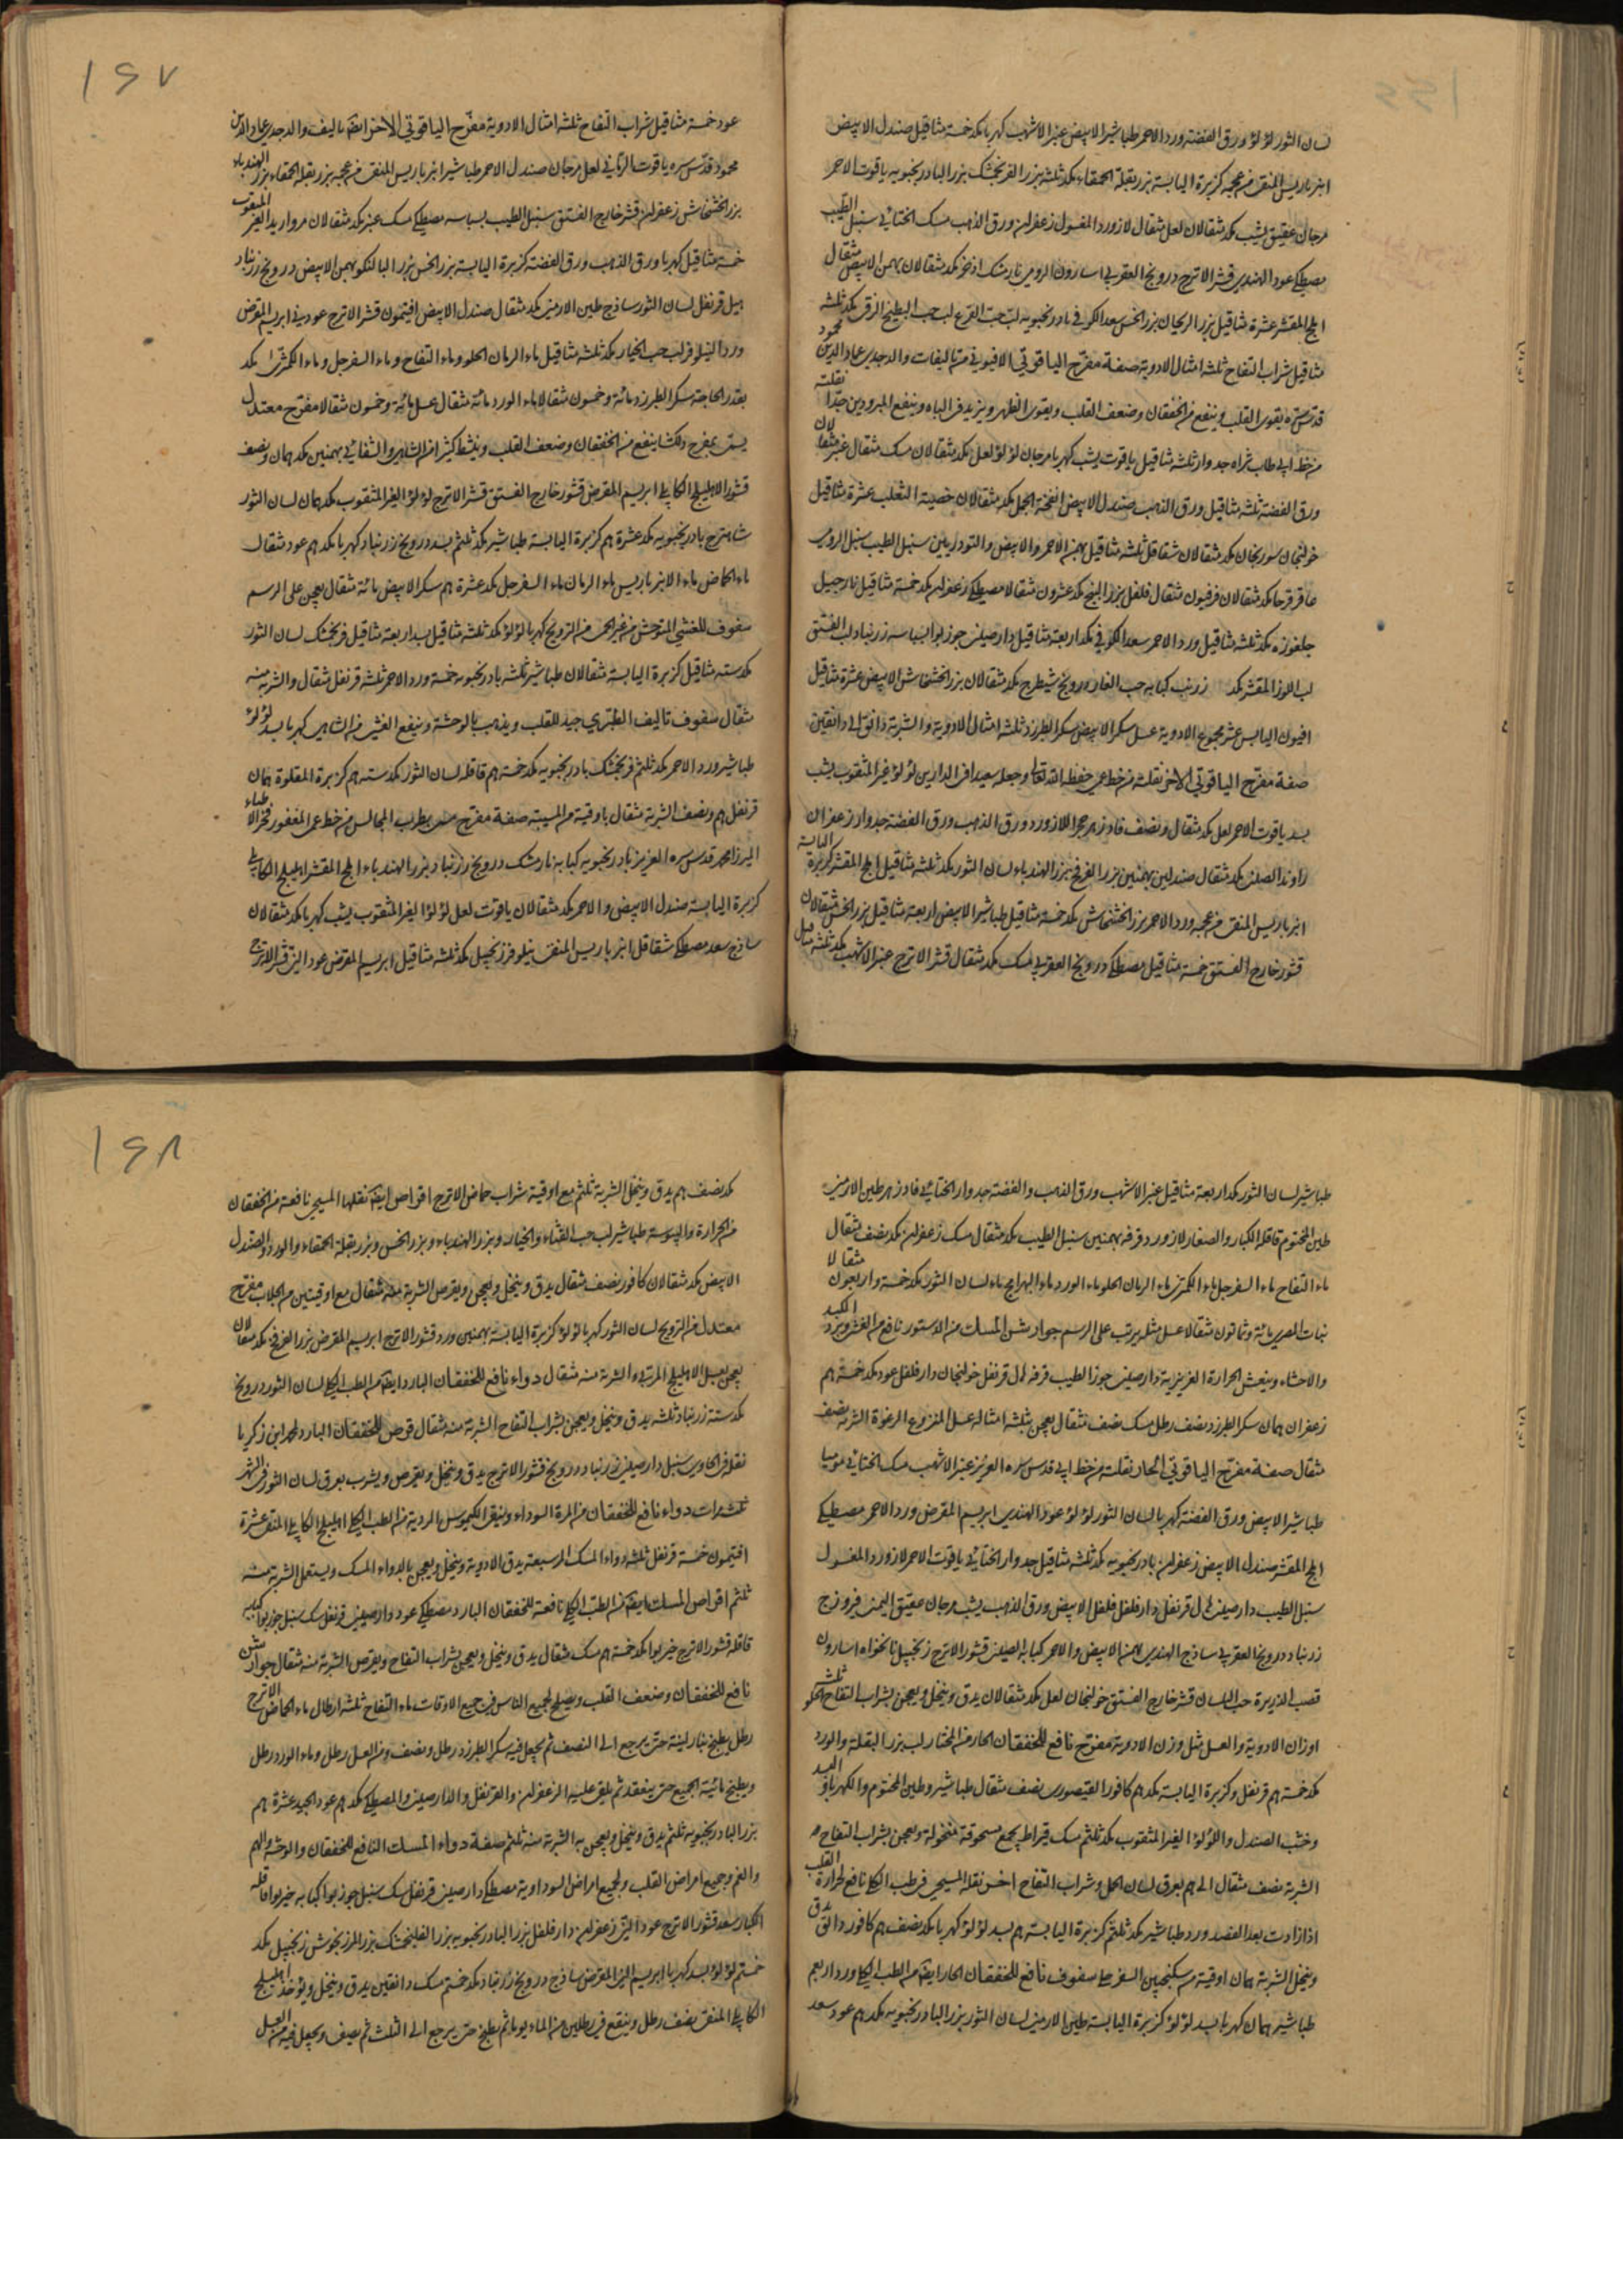 لسان الثور لؤلؤ ورق الفضة ورد الاحمر طباشير الابيض عنبر الاشهب كهربا مكد خمسة مثاقيل صندل الابيض
انبرباريس المنقى من عجمه كزبرة اليابسة بزر بقلة الحمقاء مكد ثلثه بزر الفرنجمشك بزر البادرنجبويه ياقوت الاحمر
مرجان عقيق يشب مكد مثقالان لعل مثقال لازورد المغسول زعفران ورق الذهب مسك الختائي سنبل الطيب
مصطكي عود الهندي قشر الاترج درونج العقربي اسارون الرومي نارمشك اذخر مكد مثقالان بهمن الابيض مثقال
املج المقشر عشرة مثاقيل بزر الريحان بزر الخس سعد الكوفي بادرنجبويه لب حب القرع لب حب البطيخ الزقي مكد ثلثه
مثاقيل شراب التفاح ثلثه امثال الادوية صفة مفرح الياقوتي الافيوني من تاليفات والد جدي عماد الدين محمود
قدس سره يقوي القلب وينفع من الخفقان وضعف القلب ويقوي الظهر ويزيد في الباه وينفع المبرودين جدا نقلته
من خط ابي طاب ثراه جدوار ثلثه مثاقيل ياقوت يشب كهربا مرجان لؤلؤ لعل مكد مثقالان مسك مثقال عنبر مثقالان
ورق الفضة ثلثه مثاقيل ورق الذهب صندل الابيض انفخة الجمل مكد مثقالان خصية الثعلب عشرة مثاقيل
خولنجان سورنجان مكد مثقالان شقاقل ثلثه مثاقيل بهمن الاحمر والابيض والتودريين سنبل الطيب سنبل الرومي
عاقرقرحا مكد مثقالان فرفيون مثقال فلفل بزر البنج مكد عشرون مثقالا مصطكي زعفران مكد خمسة مثاقيل نارجيل
جلغوزه مكد ثلثه مثاقيل ورد الاحمر سعد الكوفي مكد اربعة مثاقيل دارصيني جوزبوا بسباسه زرنباد لب الفستق
لب اللوز المقشر مكد زرنب كبابه حب الغار درونج شيطرج مكد مثقالان بزر الخشخاش الابيض عشرة مثاقيل
افيون اليابس عشر مجموع الادوية عسل سكر الابيض سكر الطبرزد ثلثه امثال الادوية والشربة دانق الى دانقين
صفة مفرح الياقوتي الاخر نقلته من خط عمي حفظه الله تعالى وجعله سعيدا في الدارين لؤلؤ غير المثقوب يشب
بسد ياقوت الاحمر لعل مكد مثقال ونصف فادزهر حجر اللازورد ورق الذهب ورق الفضة جدوار زعفران
راوند الصيني مكد مثقال صندلين بهمنين بزر الفرفخ بزر الهندباء لسان الثور مكد ثلثه مثاقيل املج المقشر كزبرة اليابسة
انبرباريس المنقى من عجمه ورد الاحمر بزر الخشخاش مكد خمسة مثاقيل طباشير الابيض اربعة مثاقيل بزر الخس مثقالان
قشور خارج الفستق خمسة مثاقيل مصطكي درونج العقربي مسك مكد مثقال قشر الاترج عنبر الاشهب مكد ثلثه مثاقيل
١٦٧
عود خمسة مثاقيل شراب التفاح ثلثه امثال الادوية مفرح الياقوتي الاخر ايضا تاليف والد جدي عماد الدين
محمود قدس سره ياقوت الرماني لعل مرجان صندل الاحمر طباشير انبرباريس المنقى من عجمه بزر بقلة الحمقاء بزر الهندباء
بزر الخشخاش زعفران قشر خارج الفستق سنبل الطيب بسباسه مصطكي مسك عنبر مكد مثقالان مرواريد الغير المثقوب
خمسة مثاقيل كهربا ورق الذهب ورق الفضة كزبرة اليابسة بزر الخس بزر البالنكو بهمن الابيض درونج زرنباد
هيل قرنفل لسان الثور ساذج طين الارمني مكد مثقال صندل الابيض افتيمون قشر الاترج عود ني ابريسم المقرض
ورد النيلوفر لب حب الخيار مكد ثلثه مثاقيل ماء الرمان الحلو وماء التفاح وماء السفرجل وماء الكمثرى مكد
بقدر الحاجة سكر الطبرزد مائة وخمسون مثقالا ماء الورد مائة مثقال عسل مائة وخمسون مثقالا مفرح معتدل
يسمى بمفرح دلكشا ينفع من الخفقان وضعف القلب وينشط كثيرا من الشاهي والشفائي بهمنين مكد همان ونصف
قشور الاهليلج الكابلي ابريسم المقرض قشور خارج الفستق قشر الاترج لؤلؤ الغير المثقوب مكد همان لسان الثور
شاهترج بادرنجبويه مكد عشرة هم كزبرة اليابسة طباشير مكد ثلثم بسد درونج زرنباد كهربا مكد هم عود مثقال
ماء الحماض ماء الانبرباريس ماء الرمان ماء السفرجل مكد عشرة هم سكر الابيض مائة مثقال يعجن على الرسم
سفوف للغشي المتوحش من غير الحمى من الترويح كهربا لؤلؤ مكد ثلثه مثاقيل بسد اربعة مثاقيل فرنجمشك لسان الثور
مكد سته مثاقيل كزبرة اليابسة مثقالان طباشير ثلثه بادرنجبويه خمسة ورد الاحمر ثلثه قرنفل مثقال والشربة منه
مثقال سفوف تاليف الطبري جيد للقلب ويذهب بالوحشة وينفع الغشي من الشاهي كهربا بسد لؤلؤ
طباشير ورد الاحمر مكد ثلثم فرنجمشك بادرنجبويه مكد خمسة هم قاقله لسان الثور مكد سته هم كزبرة المقلوة همان
قرنفل هم ونصف الشربة مثقال باوقية من الميبه صفة مفرح مسمى بمطرب المجالس من خط عمي المغفور فخر الاطباء
الميرزا محمد قدس سره العزيز بادرنجبويه كبابه نارمشك درونج زرنباد بزر الهندباء املج المقشر اهليلج الكابلي
كزبرة اليابسة صندل الابيض والاحمر مكد مثقالان ياقوت لعل لؤلؤ الغير المثقوب يشب كهربا مكد مثقالان
ساذج سعد مصطكي شقاقل انبرباريس المنقى نيلوفر زنجبيل مكد ثلثه مثاقيل ابريسم المقرض عود الني قشر الاترج
طباشير لسان الثور مكد اربعة مثاقيل عنبر الاشهب ورق الذهب والفضة جدوار الختائي فادزهر طين الارمني
طين المختوم قاقله الكبار والصغار لازورد قرفه بهمنين سنبل الطيب مكد مثقال مسك زعفران مكد نصف مثقال
ماء التفاح ماء السفرجل ماء الكمثرى ماء الرمان الحلو ماء الورد ماء البهرامج ماء لسان الثور مكد خمسة واربعون مثقالا
نبات المصري مائة وثمانون مثقالا عسل مثله يرتب على الرسم جوارشن المسك من الدستور نافع من الغشي وبرد الكبد
والاحشاء وينعش الحرارة الغريزية دارصيني جوز الطيب قرفه هال قرنفل خولنجان دارفلفل عود مكد خمسة هم
زعفران همان سكر الطبرزد نصف رطل مسك نصف مثقال يعجن بثلثه امثاله عسل المنزوع الرغوة الشربة نصف
مثقال صفة مفرح الياقوتي الحار نقلته من خط ابي قدس سره العزيز عنبر الاشهب مسك الختائي موميا
طباشير الابيض ورق الفضة كهربا لسان الثور لؤلؤ عود الهندي ابريسم المقرض ورد الاحمر مصطكي
املج المقشر صندل الابيض زعفران بادرنجبويه مكد ثلثه مثاقيل جدوار الختائي ياقوت الاحمر لازورد المغسول
سنبل الطيب دارصيني هال قرنفل دارفلفل فلفل الابيض ورق الذهب يشب مرجان عقيق اليمني فيروزج
زرنباد درونج العقربي ساذج الهندي بهمن الابيض والاحمر كبابه الصيني قشور الاترج زنجبيل نانخواه اسارون
قصب الذريرة حب البلسان قشر خارج الفستق خولنجان لعل مكد مثقالان يدق وينخل ويعجن بشراب التفاح الحلو ثلثه
اوزان الادوية والعسل مثل وزن الادوية مفرح نافع للخفقان الحار من المختار لب بزر البقلة والورد
مكد خمسة هم قرنفل وكزبرة اليابسة مكد هم كافور القيصوري نصف مثقال طباشير وطين المختوم والكهربا والبسد
وخشب الصندل واللؤلؤ الغير المثقوب مكد ثلثم مسك قيراط يجمع مسحوقة منخولة ويعجن بشراب التفاح
الشربة نصف مثقال الى هم بعرق لسان الحمل وشراب التفاح اخرى نقلها المسيحي في طب الكلي نافع لحرارة القلب
اذا زادت بعد الفصد ورد طباشير مكد ثلثم كزبرة اليابسة هم بسد لؤلؤ كهربا مكد نصف هم كافور دانق يدق
وينخل الشربة همان اوقية من سكنجبين السفرجلي سفوف نافع للخفقان الحار ايضا من الطب الكلي ورد اربعم
طباشير همان كهربا بسد لؤلؤ كزبرة اليابسة طين الارمني لسان الثور بزر البادرنجبويه مكد هم عود سعد
١٦٨
مكد نصف هم يدق وينخل الشربة ثلثم مع اوقية شراب حماض الاترج اقراص ايضا نقلها المسيحي نافعة من الخفقان
من الحرارة واليبوسة طباشير لب حب القثاء والخيار وبزر الهندباء وبزر الخس وبزر بقلة الحمقاء والورد والصندل
الابيض مكد مثقالان كافور نصف مثقال يدق وينخل ويعجن ويقرص الشربة منه مثقال مع اوقيتين من الجلاب مفرح
معتدل من الترويح لسان الثور كهربا لؤلؤ كزبرة اليابسة بهمنين ورد قشور الاترج ابريسم المقرض بزر الفرفخ مكد مثقالان
يعجن بعسل الاهليلج المربى والشربة منه مثقال دواء نافع للخفقان البارد ايضا من الطب الكلي لسان الثور درونج
مكد ستة زرنباد ثلثه يدق وينخل ويعجن بشراب التفاح الشربة منه مثقال قرص للخفقان البارد لمحمد ابن زكريا
نقله في الحاوي سنبل دارصيني زرنباد درونج قشور الاترج يدق وينخل ويقرص ويشرب بعرق لسان الثور في الشهر
ثلث مرات دواء نافع للخفقان من المرة السوداء وينقى الكيموس الردية من الطب الكلي اهليلج الكابلي المنقى عشرة
افتيمون خمسة قرنفل ثلثه دواء المسك المر سبعة يدق الادوية وينخل ويعجن بالدواء المسك ويستعمل الشربة منه
ثلثم اقراص المسك ايضا من الطب الكلي نافعة للخفقان البارد مصطكي عود دارصيني قرنفل سك سنبل جوزبوا كبابه
قاقله قشور الاترج خيربوا مكد خمسة هم مسك مثقال يدق وينخل ويعجن بشراب التفاح ويقرص الشربة منه مثقال جوارشن
نافع للخفقان وضعف القلب ويصلح لجميع الناس في جميع الاوقات ماء التفاح ثلثه ارطال ماء الحماض الاترج
رطل يطبخ بنار لينة حتى يرجع الى النصف ثم يجعل فيه سكر الطبرزد رطل ونصف ومن العسل رطل وماء الورد رطل
ويطبخ مائية الجميع حتى ينعقد ثم يلقى عليه الزعفران والقرنفل والدارصيني والمصطكي مكد هم عود الجيد عشرة هم
بزر البادرنجبويه ثلثم يدق وينخل ويعجن به الشربة منه ثلثم صفة دواء المسك النافع للخفقان والوحشة والهم
والغم وجميع امراض القلب ولجميع امراض السوداوية مصطكي دارصيني قرنفل سك سنبل جوزبوا كبابه خيربوا قاقله
الكبار سعد قشور الاترج عود الني زعفران دارفلفل بزر البادرنجبويه بزر الفلنجمشك بزر المرزنجوش زنجبيل مكد
خمستم لؤلؤ بسد كهربا ابريسم الني المقرض ساذج درونج زرنباد مكد خمستم مسك دانقين يدق وينخل ويؤخذ اهليلج
الكابلي المنقى نصف رطل وينقع في رطلين من الماء يوما ثم يطبخ حتى يرجع الى الثلث ثم يصفى ويجعل فيه من العسل